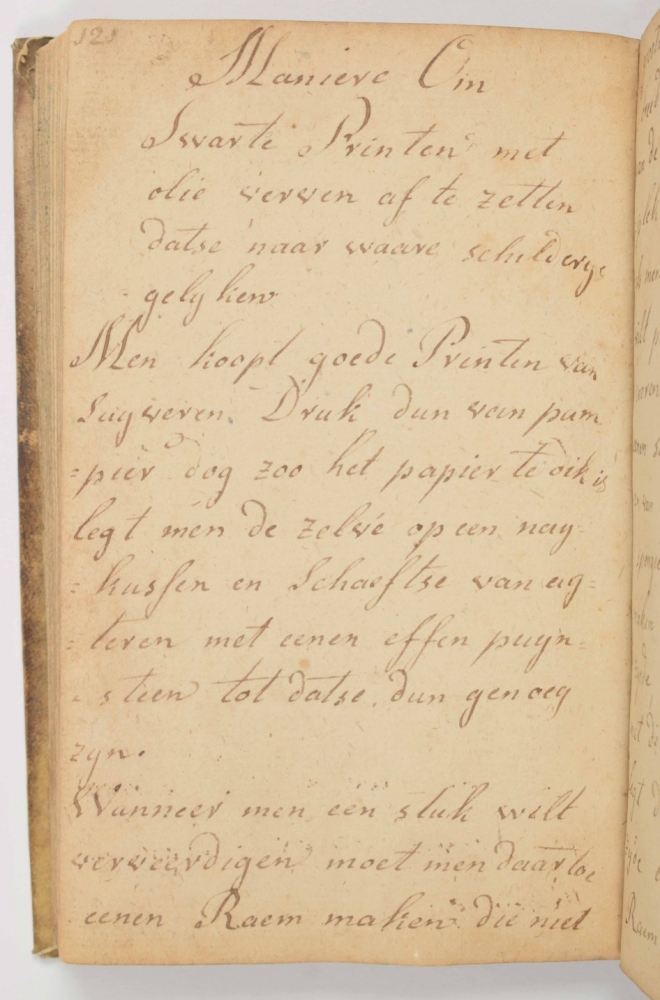 121
Maniere Om
Swarte Printen met
olie verwen af te zetten
datse naar waare schilderye
gelyken
Men koopt goede Printen van
Suyveren Druk dun van pam
=pier dog zoo het papier te dik is
legt men de zelve op een nay=
=kussen en Schaeftse van ag=
=teren met eenen effen puyn=
=steen tot datse dun genoeg
zyn.
Wanneer men een stuk wilt
verveerdigen moet men daar toe
eenen Raem maken die niet